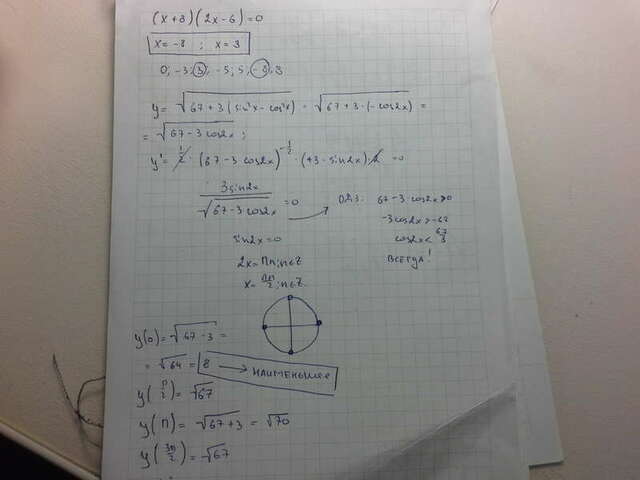 (x+8)(2x-6)=0
x=-8 ; x=3
0; -3; 3, -5; 5, -8, 8
y= √67+3(sin²x-cos²x) = √67+3·(-cos2x) =
= √67-3cos2x;
y' = 1/2 · (67-3cos2x)^(-1/2) · (+3·sin2x)·2 =0
3sin2x / √67-3cos2x =0
ОДЗ: 67-3cos2x>0
-3cos2x>-67
cos2x< 67/3
ВСЕГДА!
sin2x=0
2x=Пn; n∈Z
x= Пn/2; n∈Z.
y(0)= √67-3 =
= √64 = 8 → НАИМЕНЬШЕЕ
y(П/2)= √67
y(П)= √67+3 = √70
y(3П/2)= √67